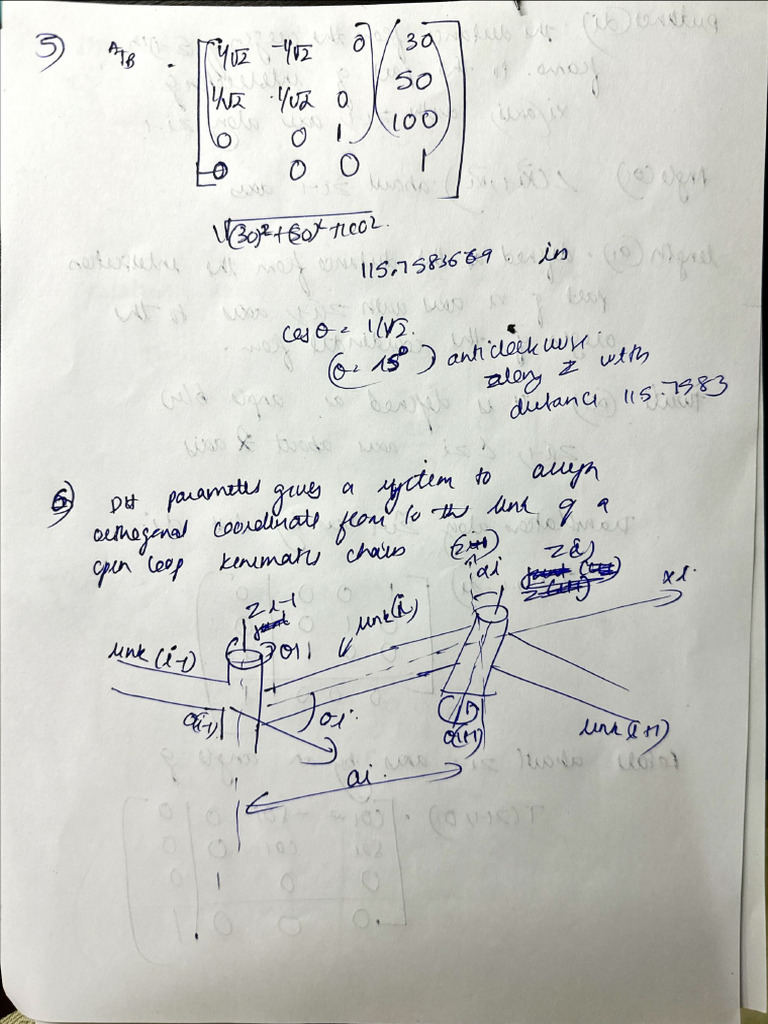 5) ATB = [ 1/√2 -1/√2 0 30
1/√2 1/√2 0 50
0 0 1 100
0 0 0 1 ]
√(30)²+(50)²+100².
115.7583669 in
cosθ = 1/√2.
(θ = 45°) anticlockwise
along Z with
distance 115.7583
6) DH parameter gives a system to assign
orthogonal coordinate from to the link of a
open loop kinematic chains
Z i-1
link (i-1)
link (i)
αi
Zi
xi
θi
O(i-1)
ai
link (i+1)